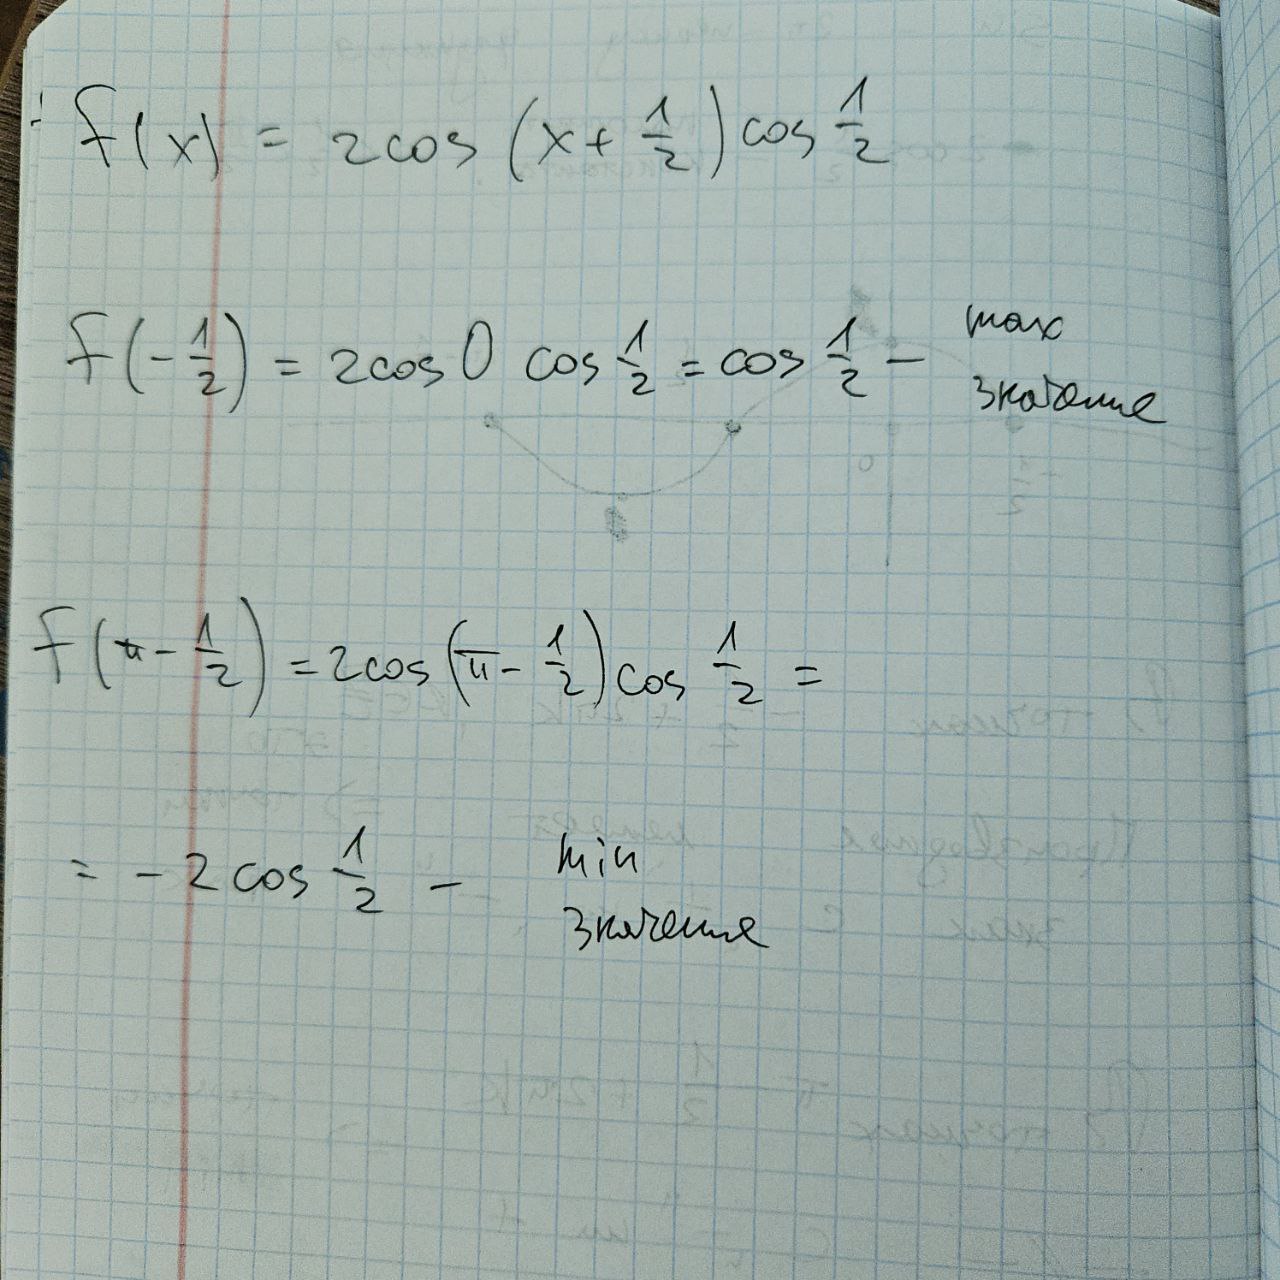 f(x) = 2cos (x + 1/2) cos 1/2
f(-1/2) = 2cos 0 cos 1/2 = cos 1/2 - max
значение
f(π - 1/2) = 2cos (π - 1/2) cos 1/2 =
= - 2 cos 1/2 - min
значение